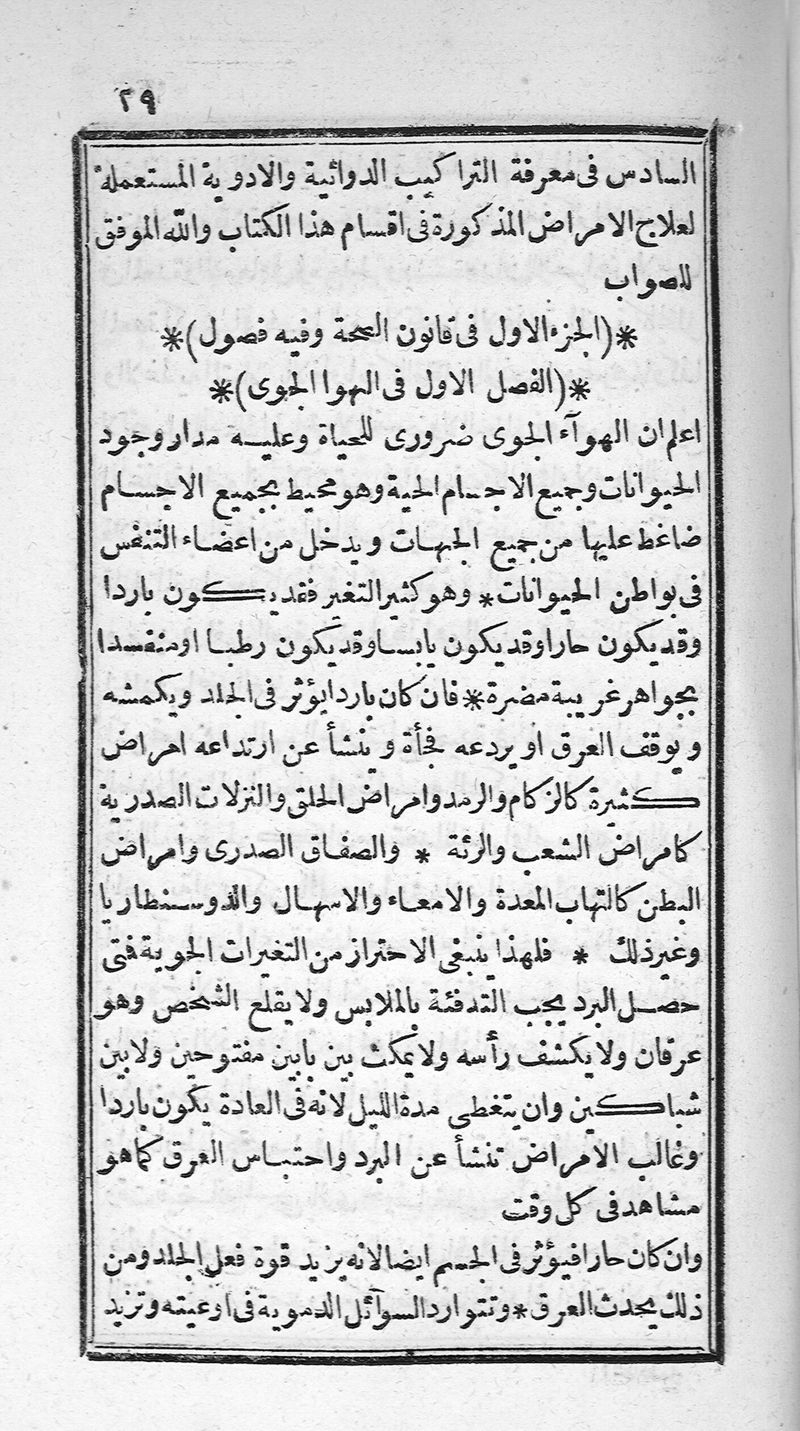 ٢٩
السادس فى معرفة التراكيب الدوائية والادوية المستعملة
لعلاج الامراض المذكورة فى اقسام هذا الكتاب والله الموفق
للصواب
*(الجزء الاول فى قانون الصحة وفيه فصول)*
*(الفصل الاول فى الهوا الجوى)*
اعلم ان الهوآء الجوى ضرورى للحياة وعليه مدار وجود
الحيوانات وجميع الاجسام الحية وهو محيط بجميع الاجسام
ضاغط عليها من جميع الجهات ويدخل من اعضاء التنفس
فى بواطن الحيوانات * وهو كثير التغير فقد يكون باردا
وقد يكون حارا وقد يكون يابسا وقد يكون رطبا او منفسدا
بجواهر غريبة مضرة * فان كان باردا يؤثر فى الجلد ويكمشه
ويوقف العرق او يردعه فجأة وينشأ عن ارتداعه امراض
كثيرة كالزكام والرمد وامراض الحلق والنزلات الصدرية
كامراض الشعب والرئة * والصفاق الصدرى وامراض
البطن كالتهاب المعدة والامعاء والاسهال والدوسنطاريا
وغير ذلك * فلهذا ينبغى الاحتراز من التغيرات الجوية فمتى
حصل البرد يجب التدفئة بالملابس ولا يقلع الشخص وهو
عرقان ولا يكشف رأسه ولا يمكث بين بابين مفتوحين ولا بين
شباكين وان يتغطى مدة الليل لانه فى العادة يكون باردا
وغالب الامراض تنشأ عن البرد واحتباس العرق كما هو
مشاهد فى كل وقت
وان كان حارا فيؤثر فى الجسم ايضا لانه يزيد قوة فعل الجلد ومن
ذلك يحدث العرق * وتتوارد السوآئل الدموية فى اوعيته وتزيد